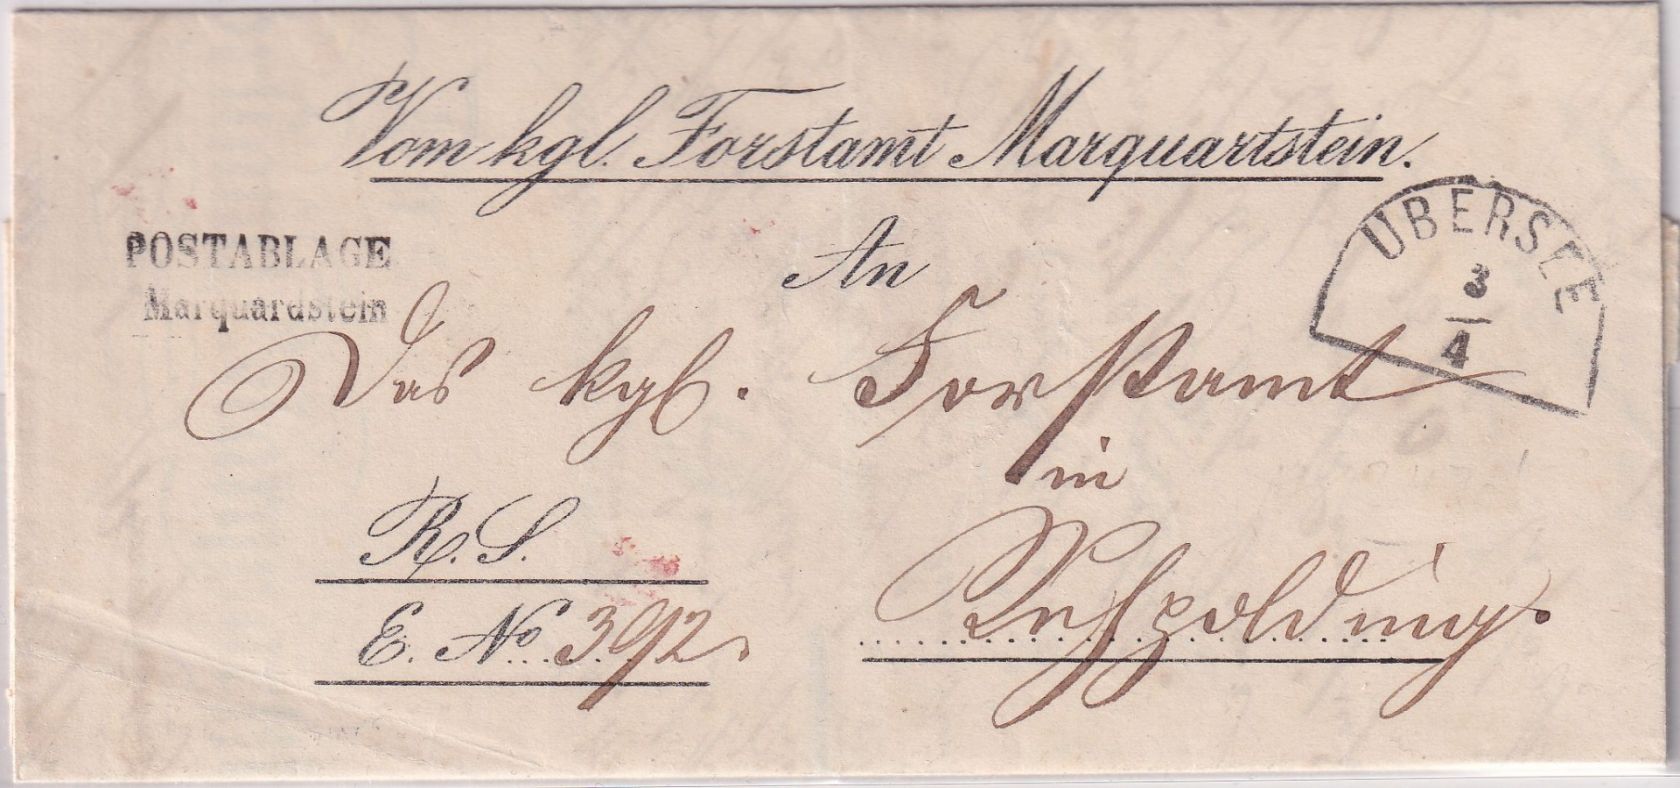 Vom kgl. Forstamt Marquartstein.
POSTABLAGE
Marquardstein
UBERSEE
3
4
An
Das kgl. Forstamt
in
Ruhpolding.
R. S.
E. No 392.